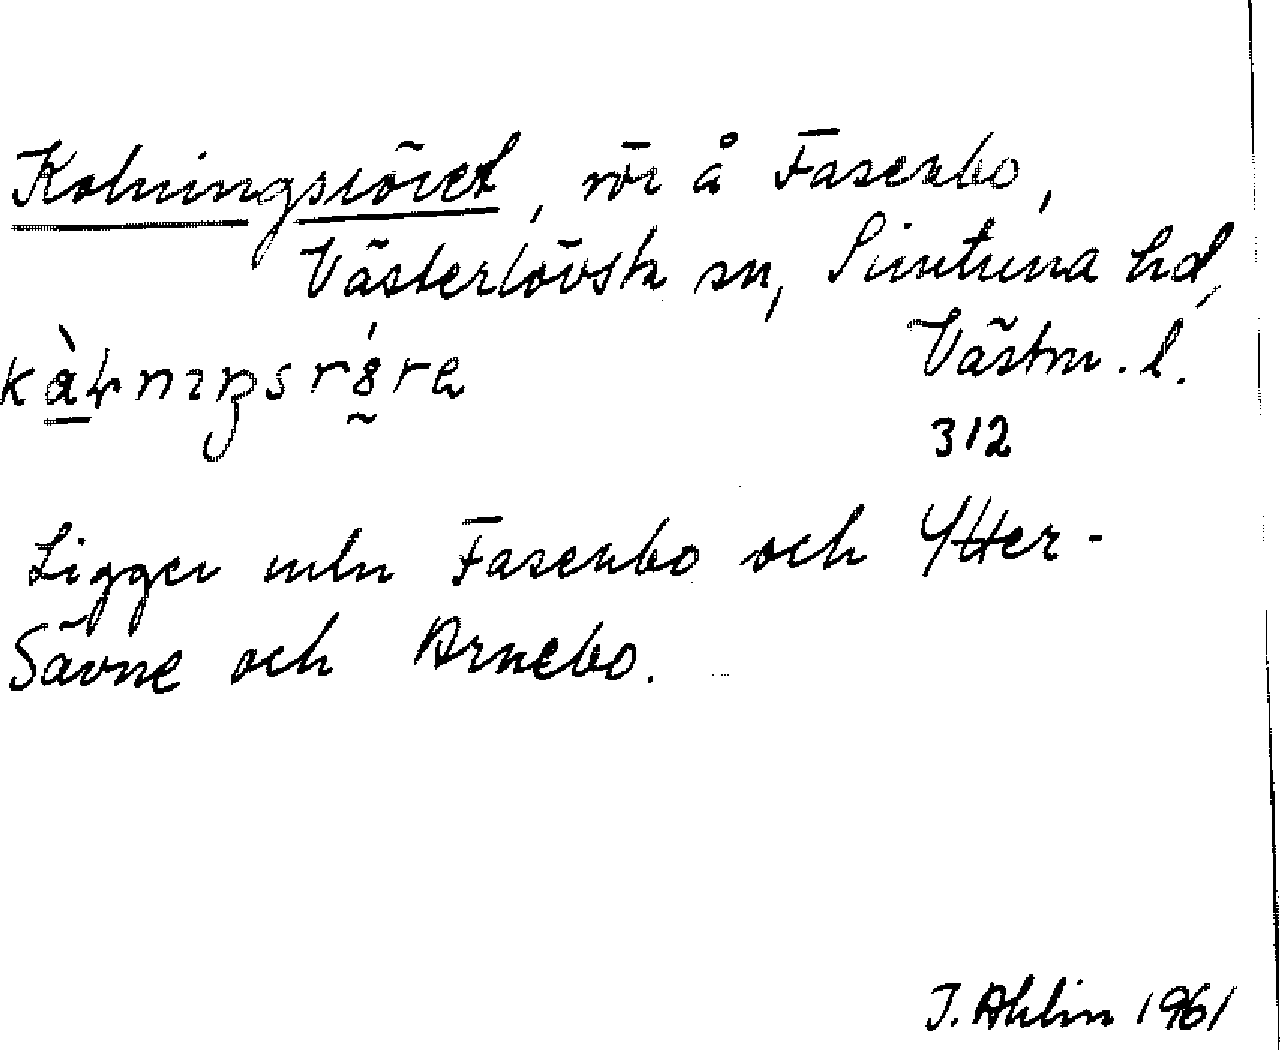 Kolningsröret, rör å Fasenbo,
Västerlövsta sn, Simtuna hd,
Västm. l.
kàłnɪŋsrö́re
312
Ligger mln Fasenbo och Ytter-
Sävne och Arnebo.
J. Ahlin 1961